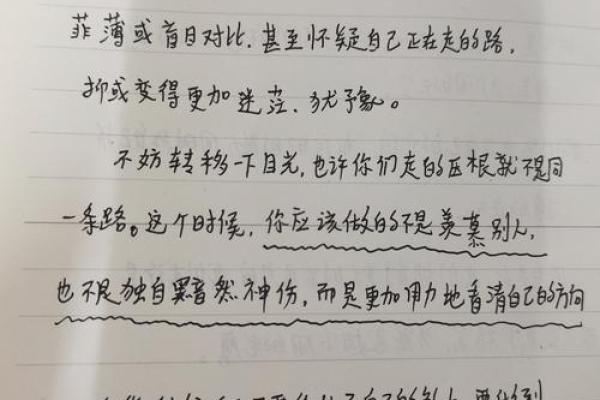 菲薄或盲目对比,甚至怀疑自己正在走的路,
抑或变得更加迷茫、犹豫。
不妨转移一下目光,也许你们走的压根就不是同
一条路。这个时候,你应该做的不是羡慕别人,
也不是独自黯然神伤,而是更加用力地看清自己的方向